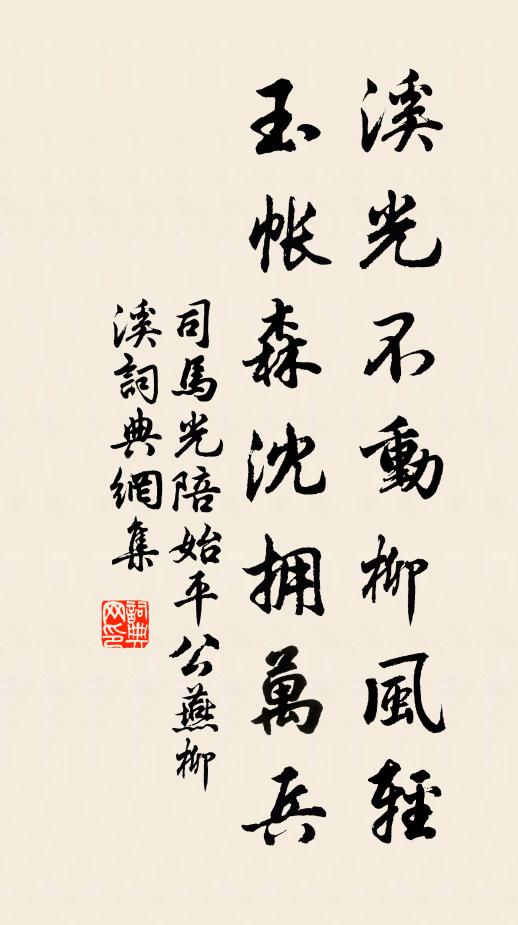 溪光不動柳風輕
玉帐森沈拥萬兵
司馬光陪始平公燕柳
溪詞典網集
詞典网印